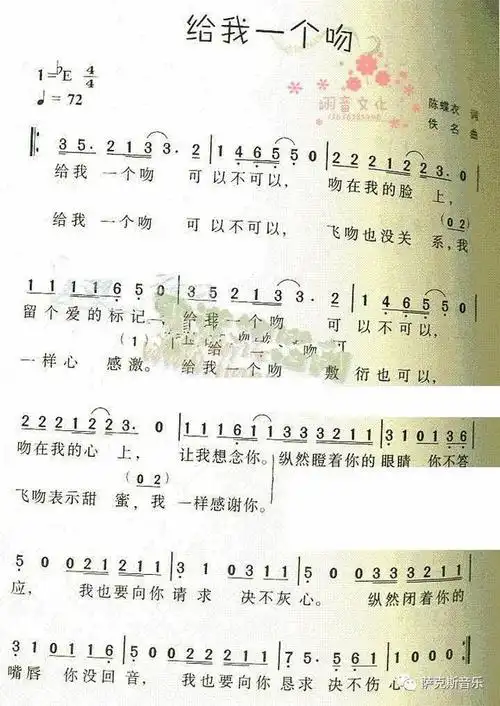 给我一个吻
1=♭E 4/4
♩= 72
翊音文化
陈蝶衣 词
佚名 曲
3 5. 2 1 3 3. 2 | 1 4 6 5 5 0 | 2 2 2 1 2 2 3. 0
给我 一个吻 可以不可以, 吻在我的脸 上,
(0 2)
给我 一个吻 可以不可以, 飞吻也没关 系,我
1 1 1 1 6 5 0 | 3 5 2 1 3 3. 2 | 1 4 6 5 5 0
留个爱的标记 给我一个吻 可以不可以,
(1)
一样心 感激。 给我一个吻 敷衍也可以,
2 2 2 1 2 2 3. 0 | 1 1 1 6 1 1 3 3 3 3 2 1 1 | 3 1 0 1 3 6
吻在我的心 上, 让我想念你。纵然瞪着你的 眼睛 你不答
(0 2)
飞吻表示甜 蜜,我 一样感谢你。
5 0 0 0 2 1 2 1 1 | 3 1 0 3 1 1 | 5 0 0 3 3 3 2 1 1
应, 我也要向你 请求 决不灰 心。 纵然闭着你的
3 1 0 1 1 6 | 5 0 0 2 2 2 1 1 | 7 5. 5 6 1 | 1 0 0 0
嘴唇 你没回 音, 我也要向你 恳求 决不伤 心
萨克斯音乐